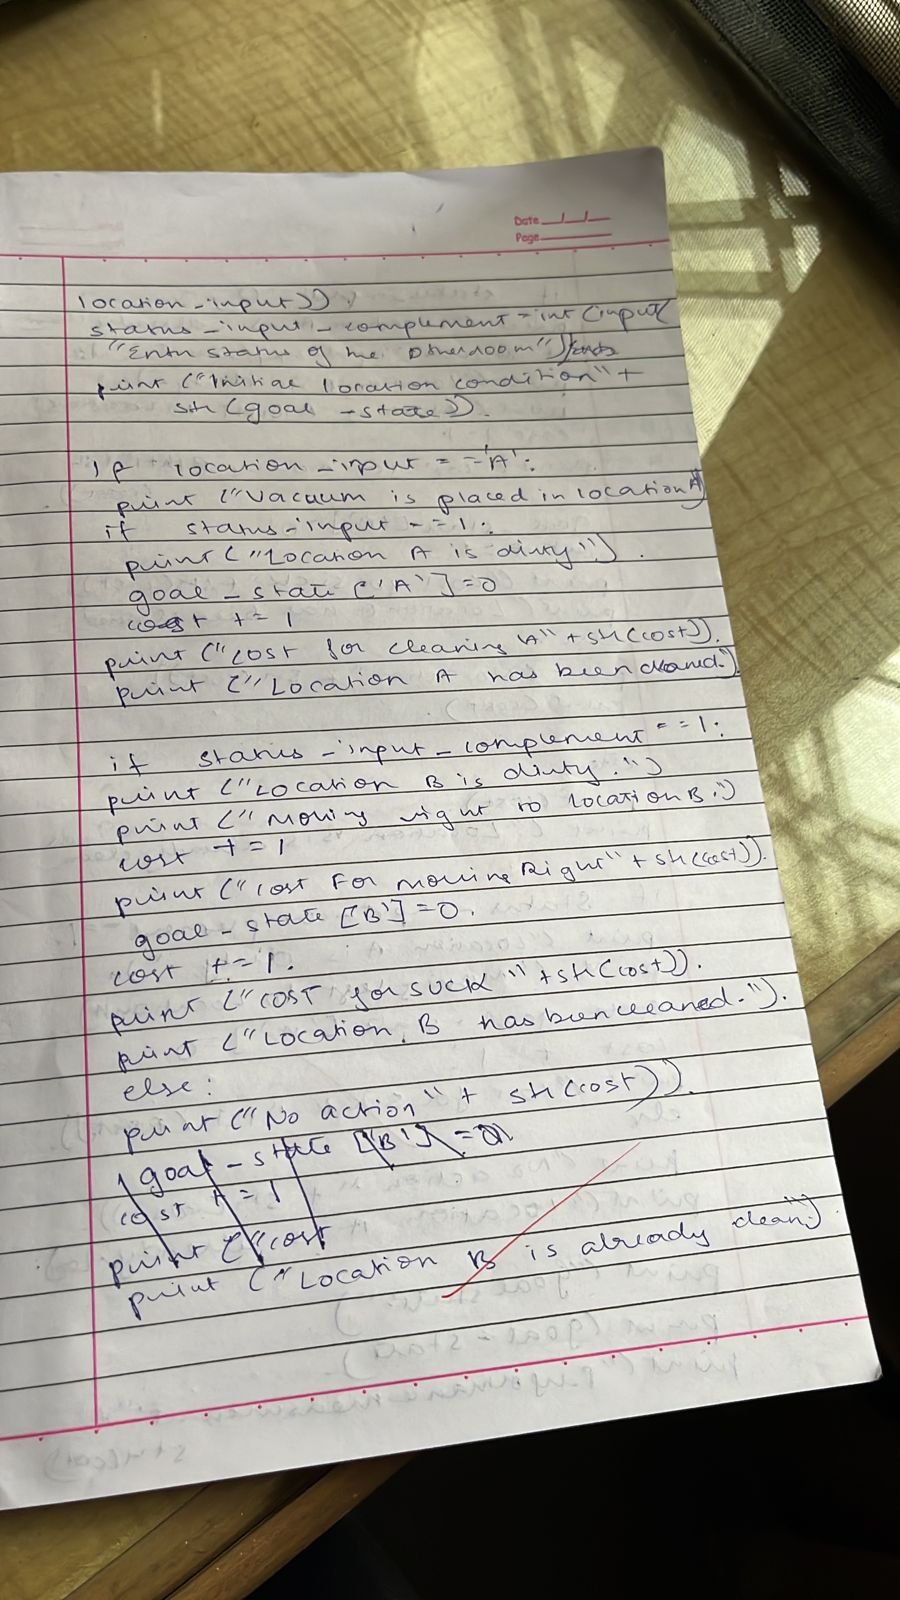 Date
Page
location-input)).
status-input-complement = int(input(
"Enter status of the other room")
print ("Initial location condition" +
str(goal-state)).
If location-input == 'A':
print ("Vacuum is placed in location A")
if status-input == 1:
print("Location A is dirty").
goal-state ['A'] = 0
cost += 1
print ("cost for cleaning A" + str(cost)).
print ("Location A has been cleaned.")
if status-input-complement == 1:
print ("Location B is dirty.")
print ("Moving right to location B.")
cost += 1
print ("cost For moving Right" + str(cost)).
goal-state ['B'] = 0.
cost += 1.
print ("COST for SUCK" + str(cost)).
print ("Location B has been cleaned.").
else:
print ("No action" + str(cost)).
goal-state ['B'] = 0
cost += 1
print ("cost
print ("Location B is already clean.")